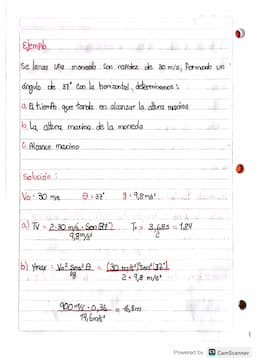 Ejemplo
Se lanza una moneda con rapidez de 30 m/s, formando un
ángulo de 37° con la horizontal, determinemos:
a. El tiempo que tarda en alcanzar la altura maxima
b. La altura maxima de la moneda
c. Alcance maximo
Solución:
Vo = 30 m/s θ = 37° g = 9,8 m/s²
a) TV = 2·30 m/s · Sen(37°) / 9,8 m/s² Ts = 3,683 / 2 = 1,84
b) Ymax = Vo² Sen² θ / 2g = (30 m/s)² (Sen² 37°) / 2 · 9,8 m/s²
900 m²/s² · 0,36 / 19,6 m/s² = 16,5m
Powered by CS CamScanner